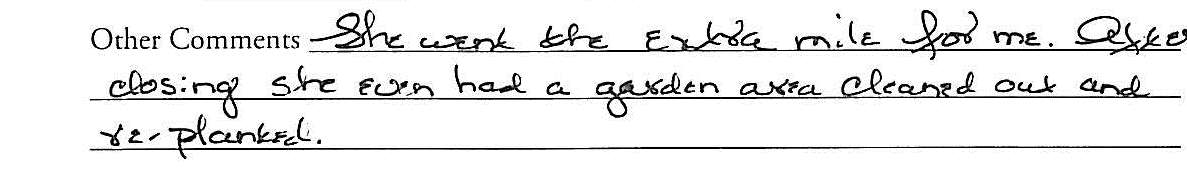 Other Comments She went the Extra mile for me. After
closing she even had a garden area cleaned out and
re-planted.